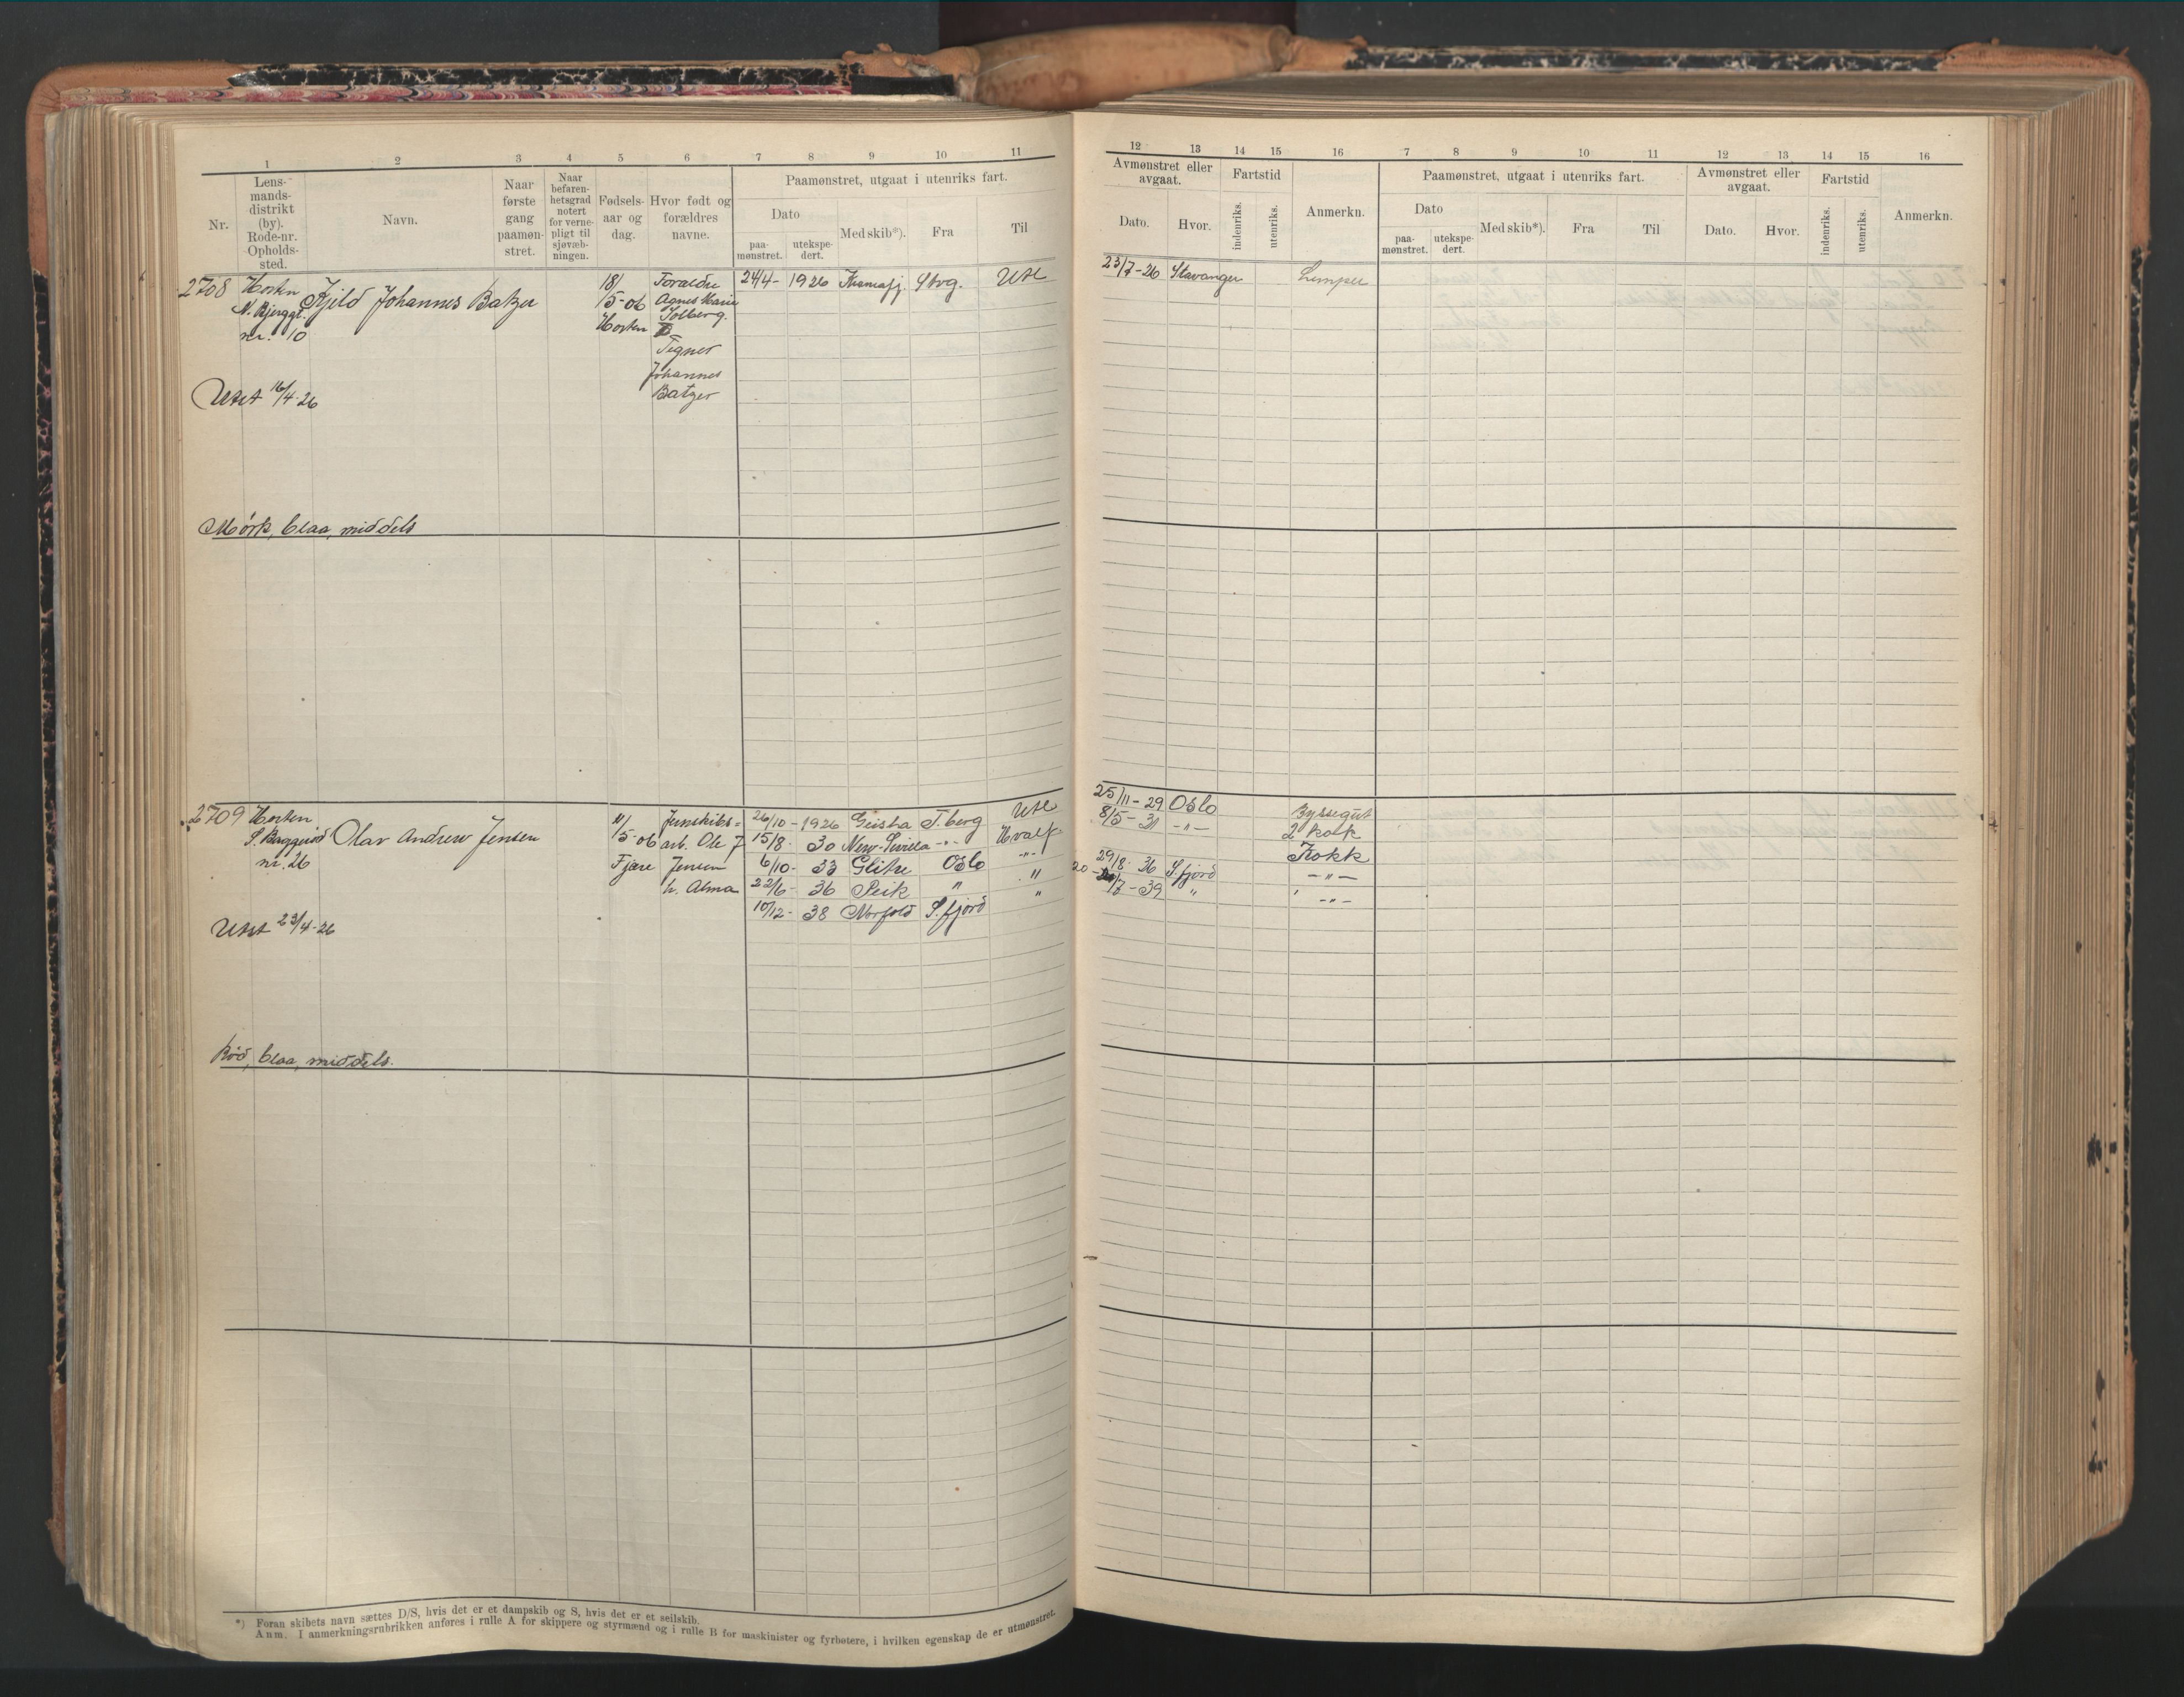 1 2 3 4 5 6 7 8 9 10 11
Nr.
Lens-
mands-
distrikt
(by).
Rode-nr.
Opholds-
sted.
Navn.
Naar
første
gang
paamøn-
stret.
Naar
befaren-
hetsgrad
notert
for verne-
pligt til
sjøvæb-
ningen.
Fødsels-
aar og
dag.
Hvor født og
forældres
navne.
Paamønstret, utgaat i utenriks fart.
Dato
paa-
mønstret.
utekspe-
dert.
Med skib*).
Fra
Til
2708 Horten
N. Bjerggt.
nr. 10
Kjeld Johannes Batzer
18/
5-06
Horten
Foraldre
Agnes Marie
Solberg.
Tegner
Johannes
Batzer
24/4- 1926 Stvg. Utl
Utst 16/4-26
Mørk, blaa, middels
2709 Horten
nr. 26
Olav Andrew Jensen
11/
5-06
Fjære
Junskibs=
arb. Ole J
Jensen
h. Alma
26/10-1926 Geisha T.berg Utl
15/8- 30 New-Sevilla -"- Hvalf.
6/10- 33 Glitre Oslo -"-
22/6- 36 Peik " "
10/12- 38 Norfold S.fjord "
Utst 23/4-26
Rød, blaa, middels.
*) Foran skibets navn sættes D/S, hvis det er et dampskib og S, hvis det er et seilskib.
Anm. I anmerkningsrubrikken anføres i rulle A for skippere og styrmænd og i rulle B for maskinister og fyrbøtere, i hvilken egenskap de er utmønstret.
12 13 14 15 16 7 8 9 10 11 12 13 14 15 16
Avmønstret eller
avgaat.
Dato.
Hvor.
Fartstid
indenriks.
utenriks.
Anmerkn.
Paamønstret, utgaat i utenriks fart.
Dato
paa-
mønstret.
utekspe-
dert.
Med skib*).
Fra
Til
Avmønstret eller
avgaat.
Dato.
Hvor.
Fartstid
indenriks.
utenriks.
Anmerkn.
23/7-26 Stavanger Lemper
25/11-29 Oslo Byssegut
8/5- 31 -"- 2 kokk
Kokk
29/8- 36 S.fjord -"-
20 /7-39 " -"-